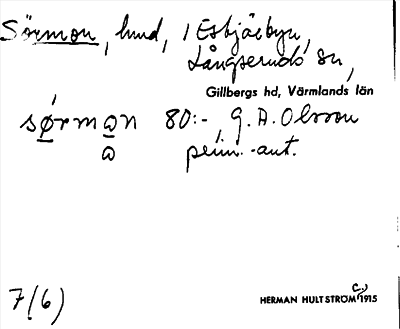 Sörmon, lund, i Esbjörbyn,
Långseruds sn,
Gillbergs hd, Värmlands län
sørmon 80:-, G. A. Olsson
prim.-aut.
7(6)
HERMAN HULTSTRÖM C. 1915